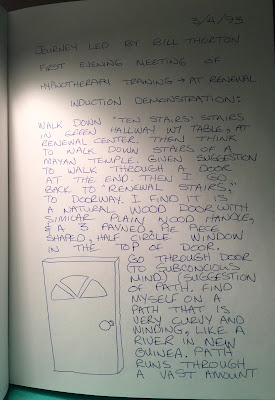 3/4/93
JOURNEY LED BY BILL THORTON
FIRST EVENING MEETING OF
HYPNOTHERAPY TRAINING → AT RENEWAL
INDUCTION DEMONSTRATION:
WALK DOWN "TEN STAIRS" STAIRS
IN GREEN HALLWAY W/ TABLE, AT
RENEWAL CENTER. THEN THINK
TO WALK DOWN STAIRS OF A
MAYAN TEMPLE. GIVEN SUGGESTION
TO WALK THROUGH A DOOR
AT THE END. THEN I GO
BACK TO "RENEWAL STAIRS."
TO DOORWAY. I FIND IT IS
A NATURAL WOOD DOOR WITH
SIMILAR PLAIN WOOD HANDLE,
& A 3 PAYNED, PIE PIECE
SHAPED, HALF CIRCLE WINDOW
IN THE TOP OF DOOR.
GO THROUGH DOOR
(TO SUBCONCIOUS
MIND) (SUGGESTION
OF PATH. FIND
MYSELF ON A
PATH THAT IS
VERY CURVY AND
WINDING, LIKE A
RIVER IN NEW
GUINEA. PATH
RUNS THROUGH
A VAST AMOUNT